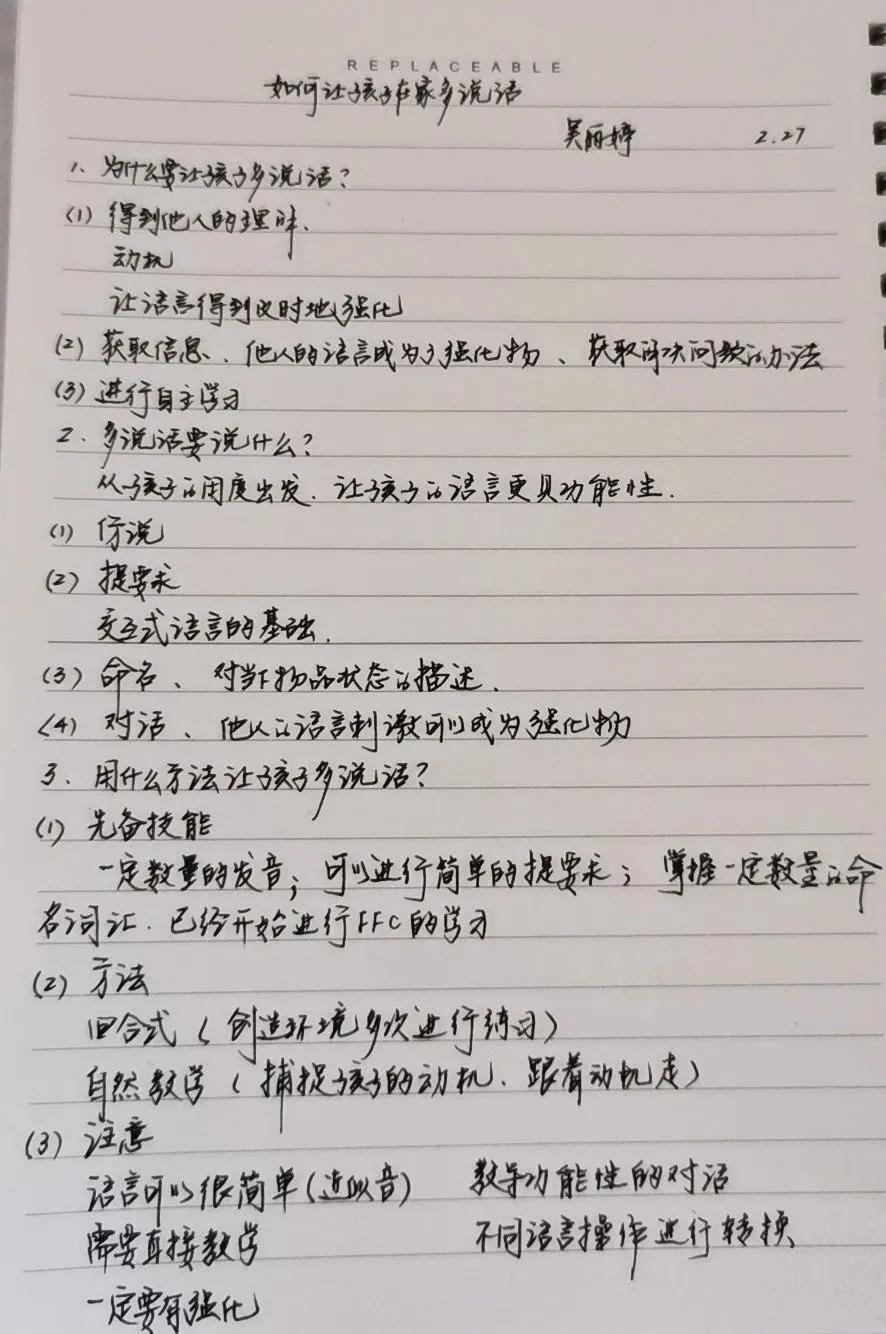 REPLACEABLE
如何让孩子在家多说话
吴丽婷 2.27
1、为什么要让孩子多说话？
(1) 得到他人的理解.
动机
让语言得到及时地强化
(2) 获取信息、他人的语言成为了强化物、获取解决问题的办法
(3) 进行自主学习
2、多说话要说什么？
从孩子的角度出发.让孩子的语言更具功能性.
(1) 仿说
(2) 提要求
交互式语言的基础.
(3) 命名、对当下物品状态的描述.
(4) 对话、他人的语言刺激可以成为强化物
3、用什么方法让孩子多说话？
(1) 先备技能
一定数量的发音；可以进行简单的提要求；掌握一定数量的命
名词汇.已经开始进行FFC的学习
(2) 方法
回合式（创造环境多次进行练习）
自然教学（捕捉孩子的动机.跟着动机走）
(3) 注意
语言可以很简单(近似音) 教导功能性的对话
需要直接教学 不同语言操作进行转换
一定要有强化